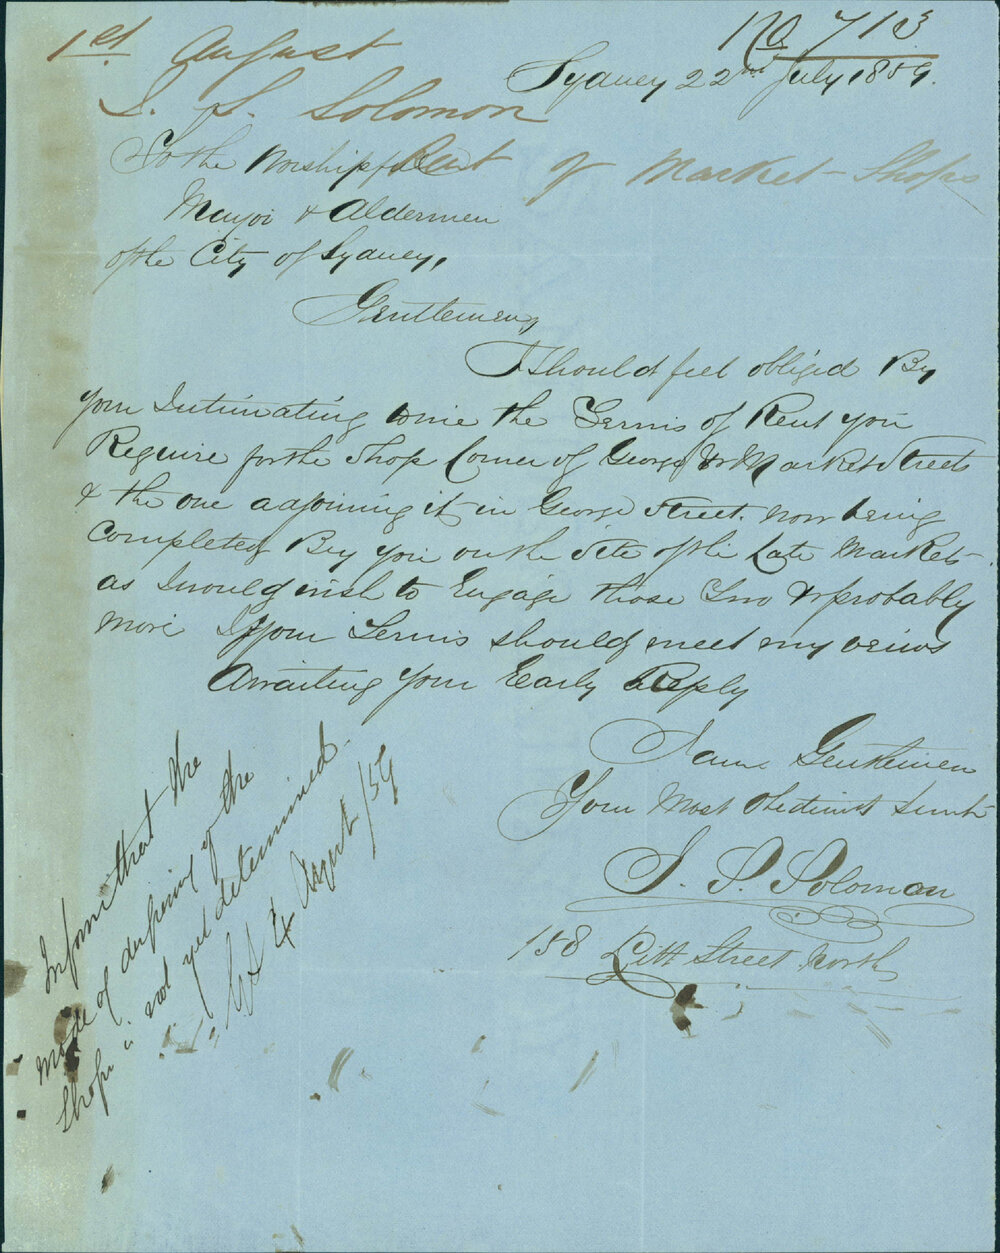 No 713
1st August
Sydney 22nd July 1859.
S. S. Solomon
Rent of Market-Shops
To the Worshipful
Mayor & Aldermen
of the City of Sydney,
Gentlemen,
I Should feel obliged By
your Intimating to me the Terms of Rent you
Require for the Shop Corner of George & Market Streets
& the one adjoining it in George Street. now being
Completed By you on the Site of the Late Market
as I would wish to Engage those Two & probably
more If your Terms should meet my views
Awaiting your Early Reply
I am Gentlemen
Your Most Obedient Servt
S. S. Solomon
158 Pitt Street North
Inform that the
mode of disposing of the
Shops "is not yet determined.
4 August /59